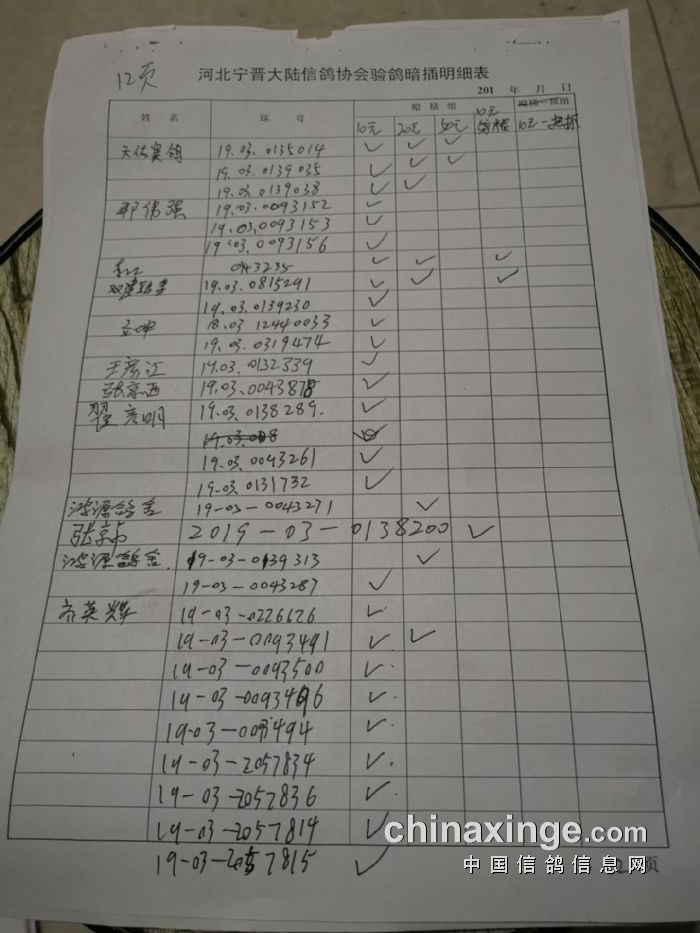 12页
河北宁晋大陆信鸽协会验鸽暗插明细表
201 年 月 日
姓 名 环 号 暗 插 组
10元 20元 50元 10元 10元一起抓
天佑赛鸽 19.03.0135014 ✓ ✓ ✓
19.03.0139035 ✓ ✓ ✓
19.03.0139038 ✓ ✓
邢伟强 19.03.0093152 ✓
19.03.0093153 ✓
19.03.0093156 ✓
043235 ✓ ✓ ✓
19.03.0815291 ✓ ✓ ✓
19.03.0139230 ✓
立中 18.03 12440033 ✓
19.03.0319474 ✓
王彦江 19.03.0132339 ✓
张京西 19.03.0043878 ✓
翟彦明 19.03.0138289. ✓
19.03.0043261 ✓
19.03.0131732 ✓
鸿源鸽舍 19-03-0043271 ✓
张京 2019-03-0138200 ✓
鸿源鸽舍. 19-03-0139313 ✓
19-03-0043287 ✓
齐英辉 19-03-0226626 ✓
19-03-0093491 ✓ ✓
19-03-0093500 ✓
19-03-0093496 ✓
19-03-0093494 ✓
19-03-2057834 ✓
19-03-2057836 ✓
19-03-2057814 ✓
19-03-2057815 ✓
页
chinaxinge.com
中国信鸽信息网